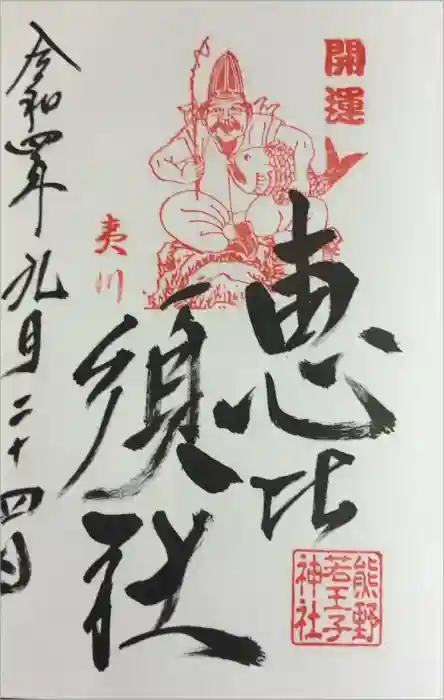 開運
恵比
須社
夷川
熊野
若王子
神社
令和四年九月二十四日